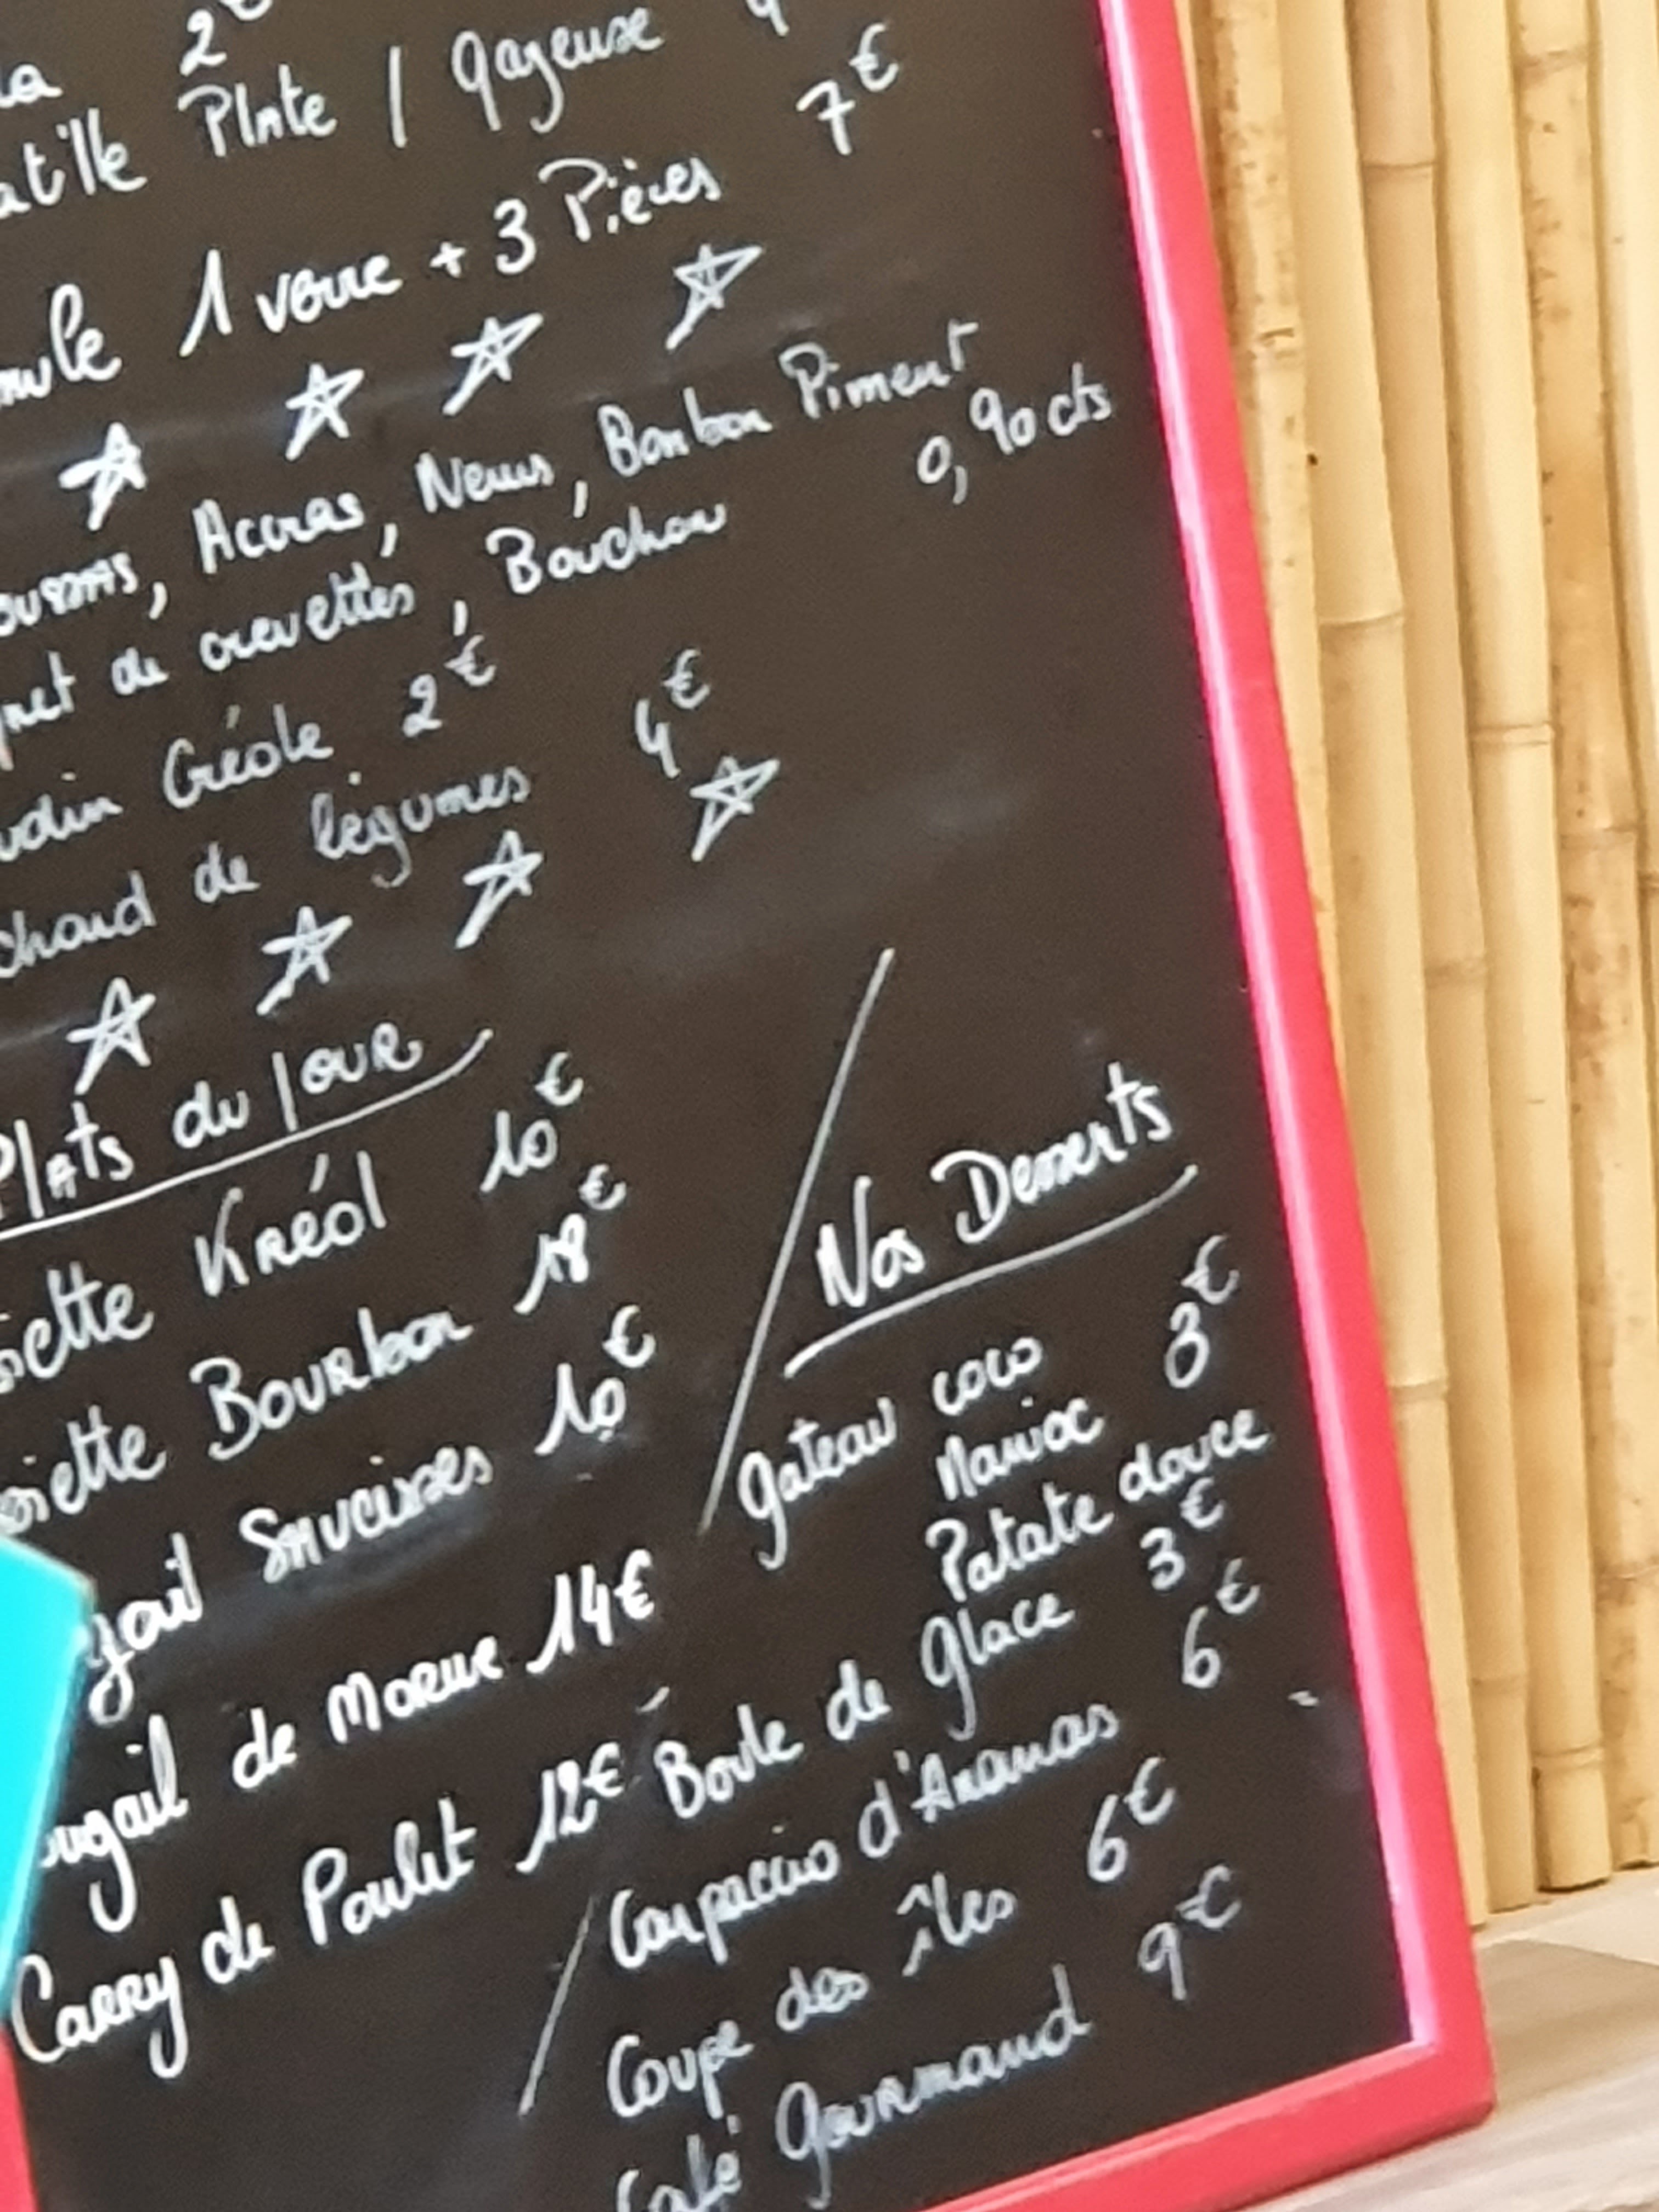 2€
Plate / gazeuse
1 verre + 3 Pièces 7€
Accras, Nems, Bonbon Piment
de crevettes, Bouchon 0,90 cts
Créole 2€
de légumes 4€
Plats du Jour
Kréol 10€
Bourbon 18€
Saucisses 10€
de Morue 14€
Carry de Poulet 12€
Nos Desserts
gateau coco
Manioc 3€
Patate douce
Boule de glace 3€
Carpaccio d'Ananas 6€
Coupe des îles 6€
Café gourmand 9€